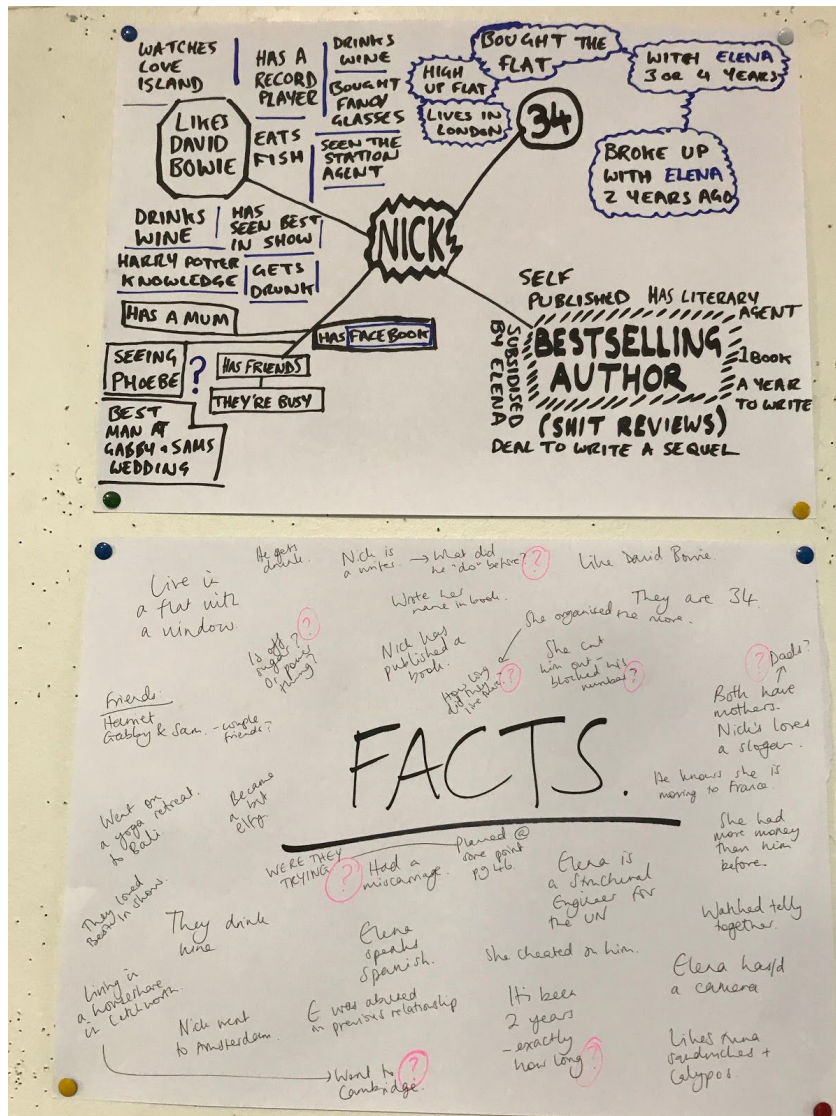 WATCHES
LOVE
ISLAND
HAS A
RECORD
PLAYER
DRINKS
WINE
BOUGHT
FANCY
GLASSES
LIKES
DAVID
BOWIE
EATS
FISH
SEEN THE
STATION
AGENT
HIGH
UP FLAT
BOUGHT THE
FLAT
LIVES IN
LONDON
34
WITH ELENA
3 OR 4 YEARS
BROKE UP
WITH ELENA
2 YEARS AGO
NICK
DRINKS
WINE
HAS
SEEN BEST
IN SHOW
HARRY POTTER
KNOWLEDGE
GETS
DRUNK
HAS A MUM
HAS FACEBOOK
SEEING
PHOEBE
?
HAS FRIENDS
THEY'RE BUSY
BEST
MAN AT
GABBY & SAMS
WEDDING
SELF
PUBLISHED
HAS LITERARY
AGENT
SUBSIDISED
BY ELENA
BESTSELLING
AUTHOR
1 BOOK
A YEAR
TO WRITE
(SHIT REVIEWS)
DEAL TO WRITE A SEQUEL
He gets
drunk.
Nick is
a writer.
→ What did
he "do" before? ?
Like David Bowie.
Live in
a flat with
a window.
Wrote her
name in book.
They are 34
She organised the move.
Is off
sugar? ?
Or power
thing?
Nick has
published a
book.
How long
did they
live there? ?
She cut
him out -
blocked his
number ?
? Dads?
Both have
mothers.
Nick's loves
a slogan.
Friends.
Harriet
Gabby & Sam. - couple
friends?
FACTS.
He knows she is
moving to France.
Went on
a yoga retreat.
to Bali
Became
a bit
She had
more money
than him
before.
WERE THEY
TRYING ?
Had a
miscarriage.
Planned @
some point
pg 46.
Elena is
a Structural
Engineer for
the UN
They loved
Best in show.
They drink
wine
Elena
speaks
Spanish.
She cheated on him.
Watched telly
together.
Living in
a houseshare
in Letchworth.
Nick went
to Amsterdam.
E was abused
in previous relationship
Its been
2 years
- exactly
how long ?
Elena has/d
a camera
Likes tuna
sandwiches +
Calypos.
→ Went to
Cambridge. ?